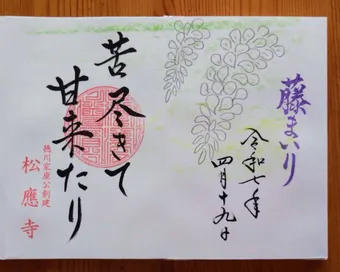 藤まいり
令和七年
四月十九日
苦尽きて
甘来たり
徳川家康公創建
松應寺